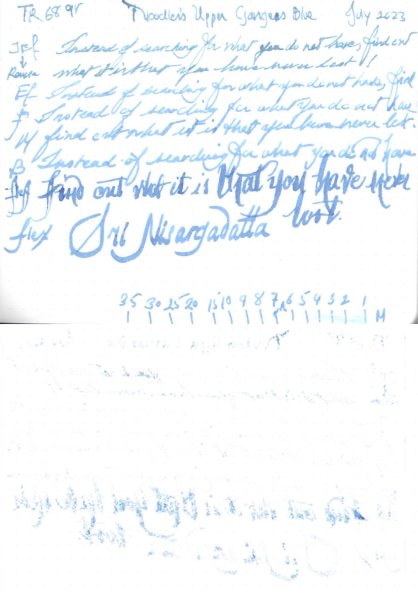 TR 68 gr Noodler's Upper Ganges Blue July 2023
Instead of searching for what you do not have, find out
what it is that you have never lost!
EF Instead of searching for what you do not have, find
F Instead of searching for what you do not have
M find out what it is that you have never lost.
B Instead of searching for what you do not have
find out what it is that you have never
lost.
flex Sri Nisargadatta
35 30 25 20 15 10 9 8 7 6 5 4 3 2 1 M